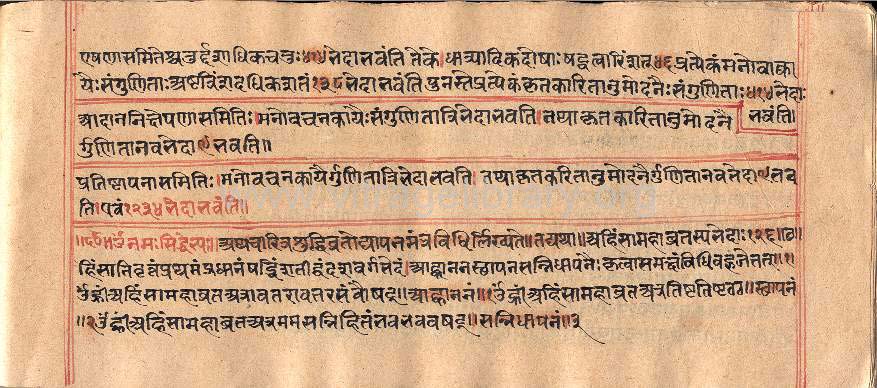 एषणासमितेश्चतुर्दशाधिकचतुः४१४भेदा भवंति तेके।धात्र्यादिकदोषाः षट्चत्वारिंशत्४६प्रत्येकं मनोवाक्का
यैः संगुणिताः अष्टत्रिंशदधिकशतं१३८भेदा भवंति पुनस्ते प्रत्येकं कृतकारितानुमोदनैः संगुणिताः४१४भेदा
भवंति।
आदाननिक्षेपणासमितिः।मनोवचनकायैः संगुणिता त्रिभेदा भवति।तथा कृतकारितानुमोदनै
र्गुणिता नवभेदा९भवति॥
प्रतिष्ठापनासमितिः।मनोवचनकायैर्गुणिता त्रिभेदा भवति।तथा कृतकारितानुमोदनैर्गुणिता नवभेदा९भव
ति।एवं१२३४भेदा भवंति॥
नमःसिद्धेभ्यः॥अथ चारित्रशुद्धिव्रतोद्यापनमंत्रविधिर्लिख्यते॥तद्यथा॥अहिंसामहाव्रतस्य भेदाः१२६॥
हिंसाति प्रथमं प्रधानं षड्विंशती आह्वाननस्थापनसन्निधापनैः कृत्वा
ह्रीं अहिंसामहाव्रत अत्रावतरावतर संवौषट्॥आह्वाननं॥ ह्रीं अहिंसामहाव्रत अत्र तिष्ठ तिष्ठ ठठ॥स्थापनं
॥२ॐ ह्रीं अहिंसामहाव्रत अत्र मम सन्निहितं भव भव वषट्॥सन्निधापनं॥३